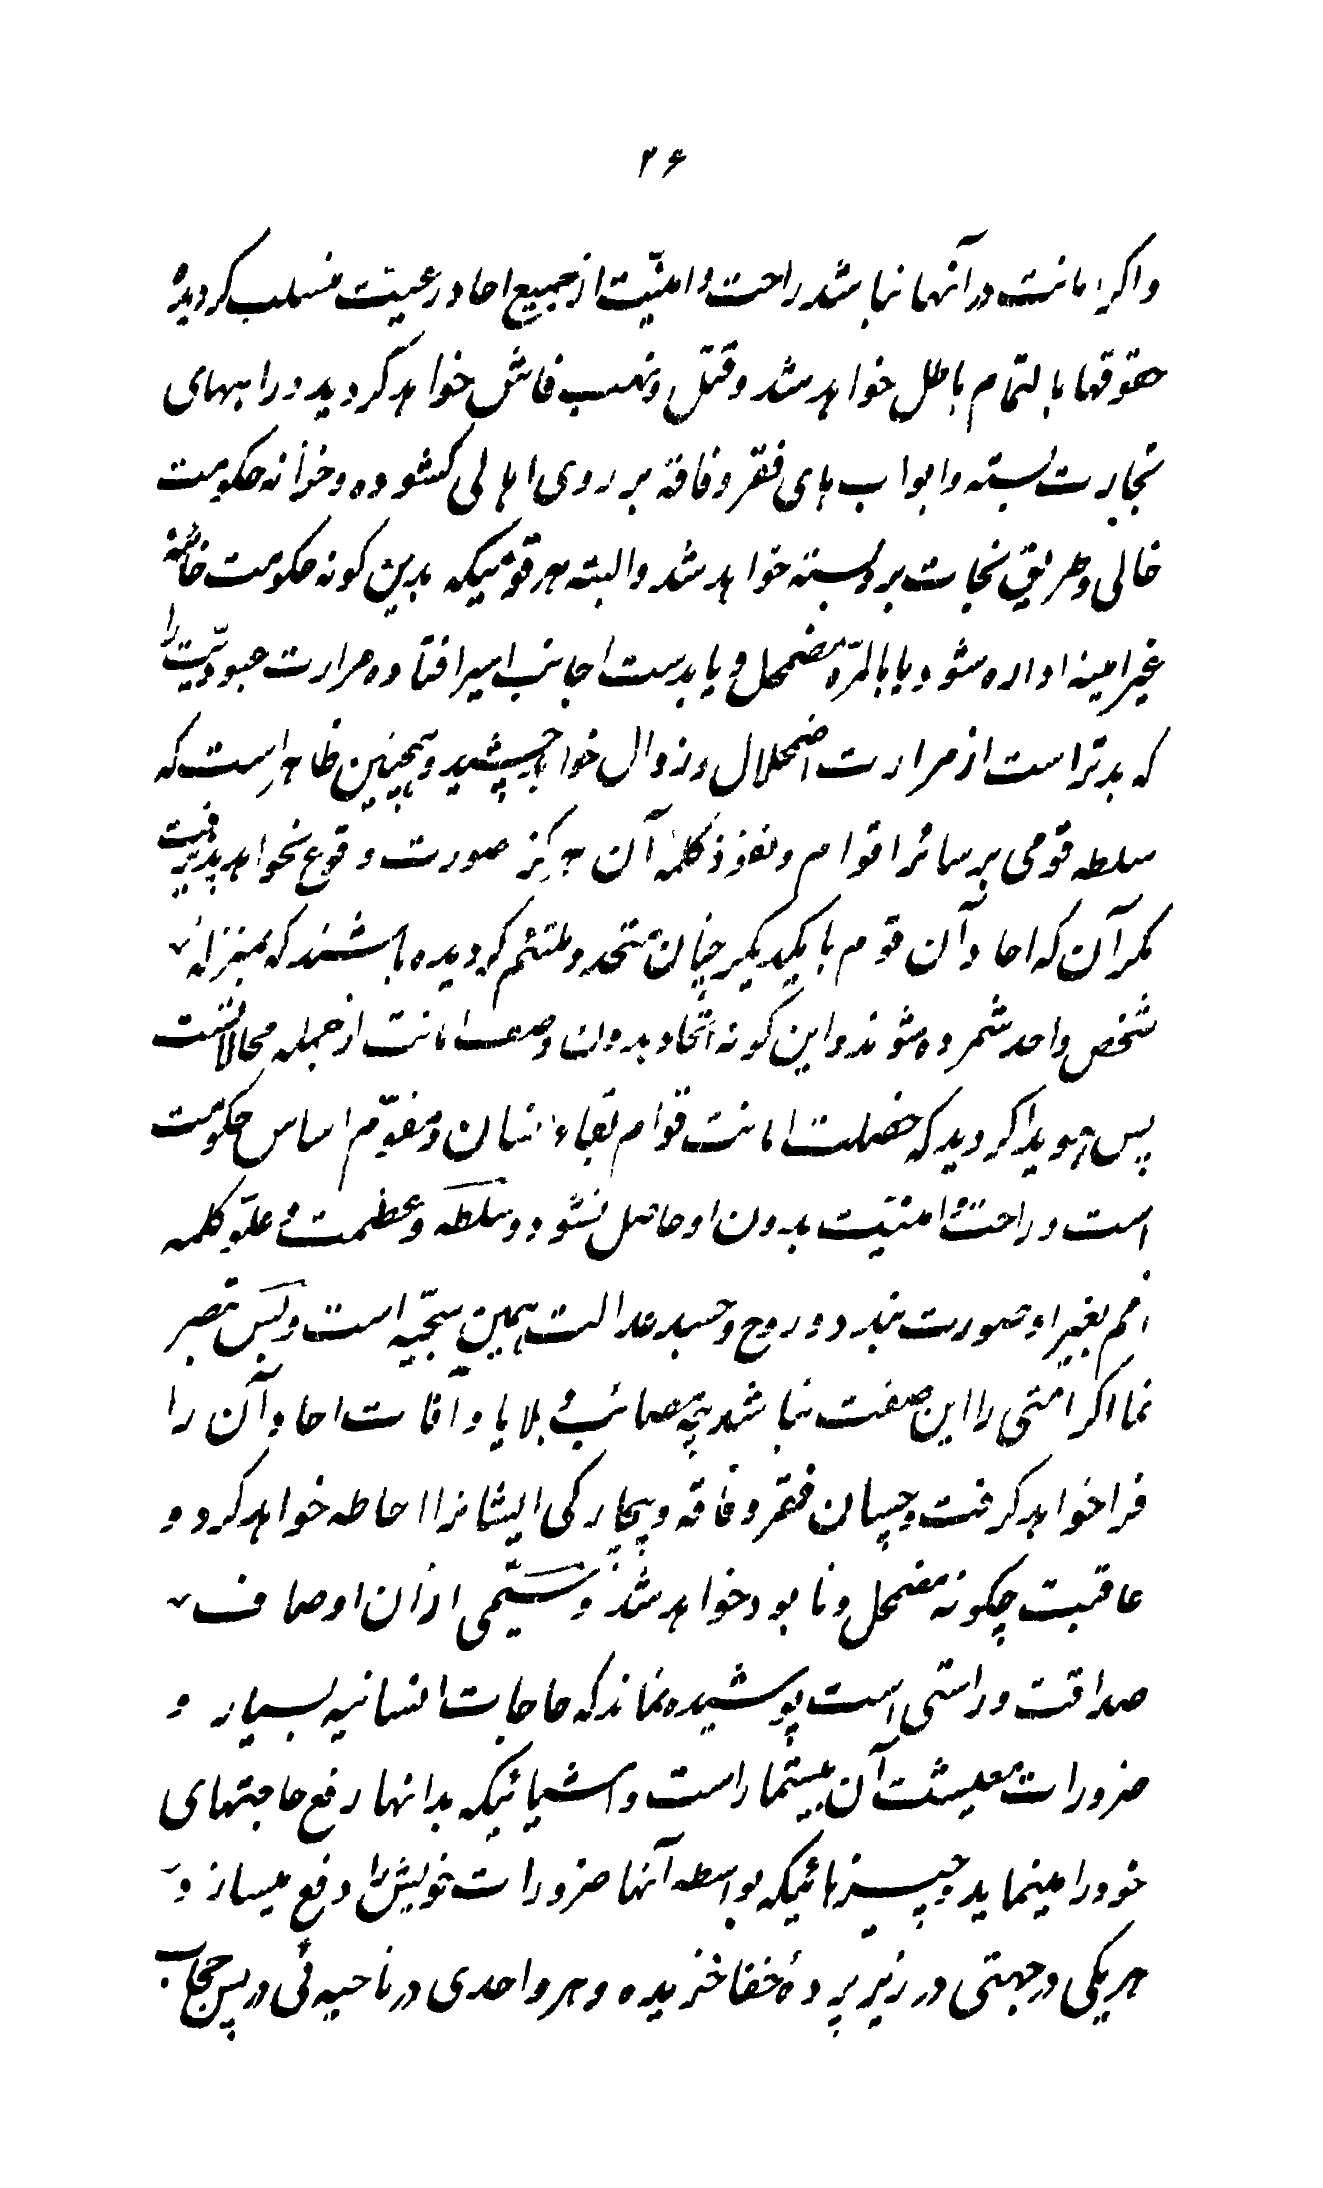 ۲۶
واکر امانت در آنها نباشد راحت و امنیّت از جمیع احاد رعیت منسلب کردیده
حقوقها بالتمام باطل خواهد شد و قتل و نهب فاش خواهد کردید و راههای
تجارت بسته و ابواب های فقر و فاقه بر روی اهالی کشوده و خزانه حکومت
خالی و طریق نجات بر و بسته خواهد شد و البته هر قومیکه بدین کونه حکومت خائنه
غیر امینه اداره شود یا بالمرّه مضمحل و یا بدست اجانب اسیر افتاده مرارت عبودیّت را
که بدتر است از مرارت اضمحلال و زوال خواهد چشید و همچنین ظاهر است که
سلطه قومی بر سائر اقوام و نفوذ کلمهٔ آن هرکز صورت وقوع نخواهد پذیرفت
مکر آن که احاد آن قوم با یکدیکر چنان متحد و ملتئم کردیده باشند که بمنزلهٔ
شخص واحد شمرده شوند و این کونه اتّحاد بدون وصف امانت از جمله محالاتست
پس هویدا کردید که خصلت امانت قوام بقاء انسان و مقوّم اساس حکومت
است و راحت و امنیّت بدون او حاصل نشود و سلطه و عظمت و علوّ کلمه
امم بغیر او صورت نبندد و روح و جسد عدالت همین سجیّه است و بس تبصر
نما اکر امتی را این صفت نباشد چه مصائب و بلایا و آفات احاد آن را
فرا خواهد کرفت و چسان فقر و فاقه و بیچارکی ایشانرا احاطه خواهد کرد و
عاقبت چکونه مضمحل و نابود خواهد شد و سیّمی از آن اوصاف
صداقت و راستی است پوشیده نماند که حاجات انسانیه بسیار و
ضرورات معیشت آن بیشمار است و اشیائیکه بدانها رفع حاجتهای
خود را مینماید و چیزهائیکه بواسطه آنها ضرورات خویش را دفع میسازد
هر یکی در جهتی در زیر پردهٔ خفا خزیده و هر واحدی در ناحیه ئی در پس حجاب